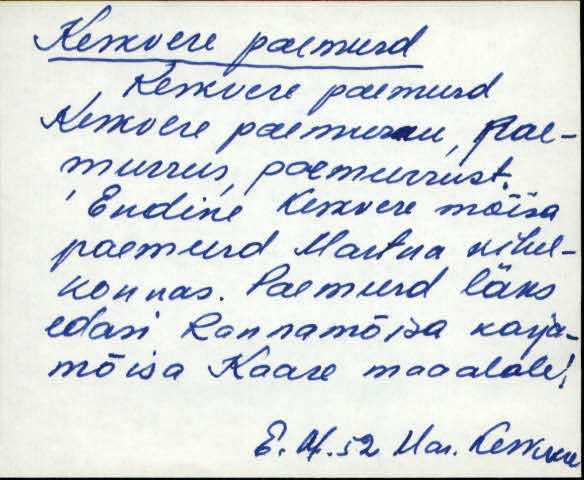 Keskvere paemurd
Keskvere paemurd
Keskvere paemurau, Pae-
murrus, paemurrust.
Endine Keskvere mõisa
paemurd Martna kihel-
konnas. Paemurd läks
edasi Rannamõisa karja-
mõisa Kaare maaalale!
E. M. 52 Mar. Keskvere